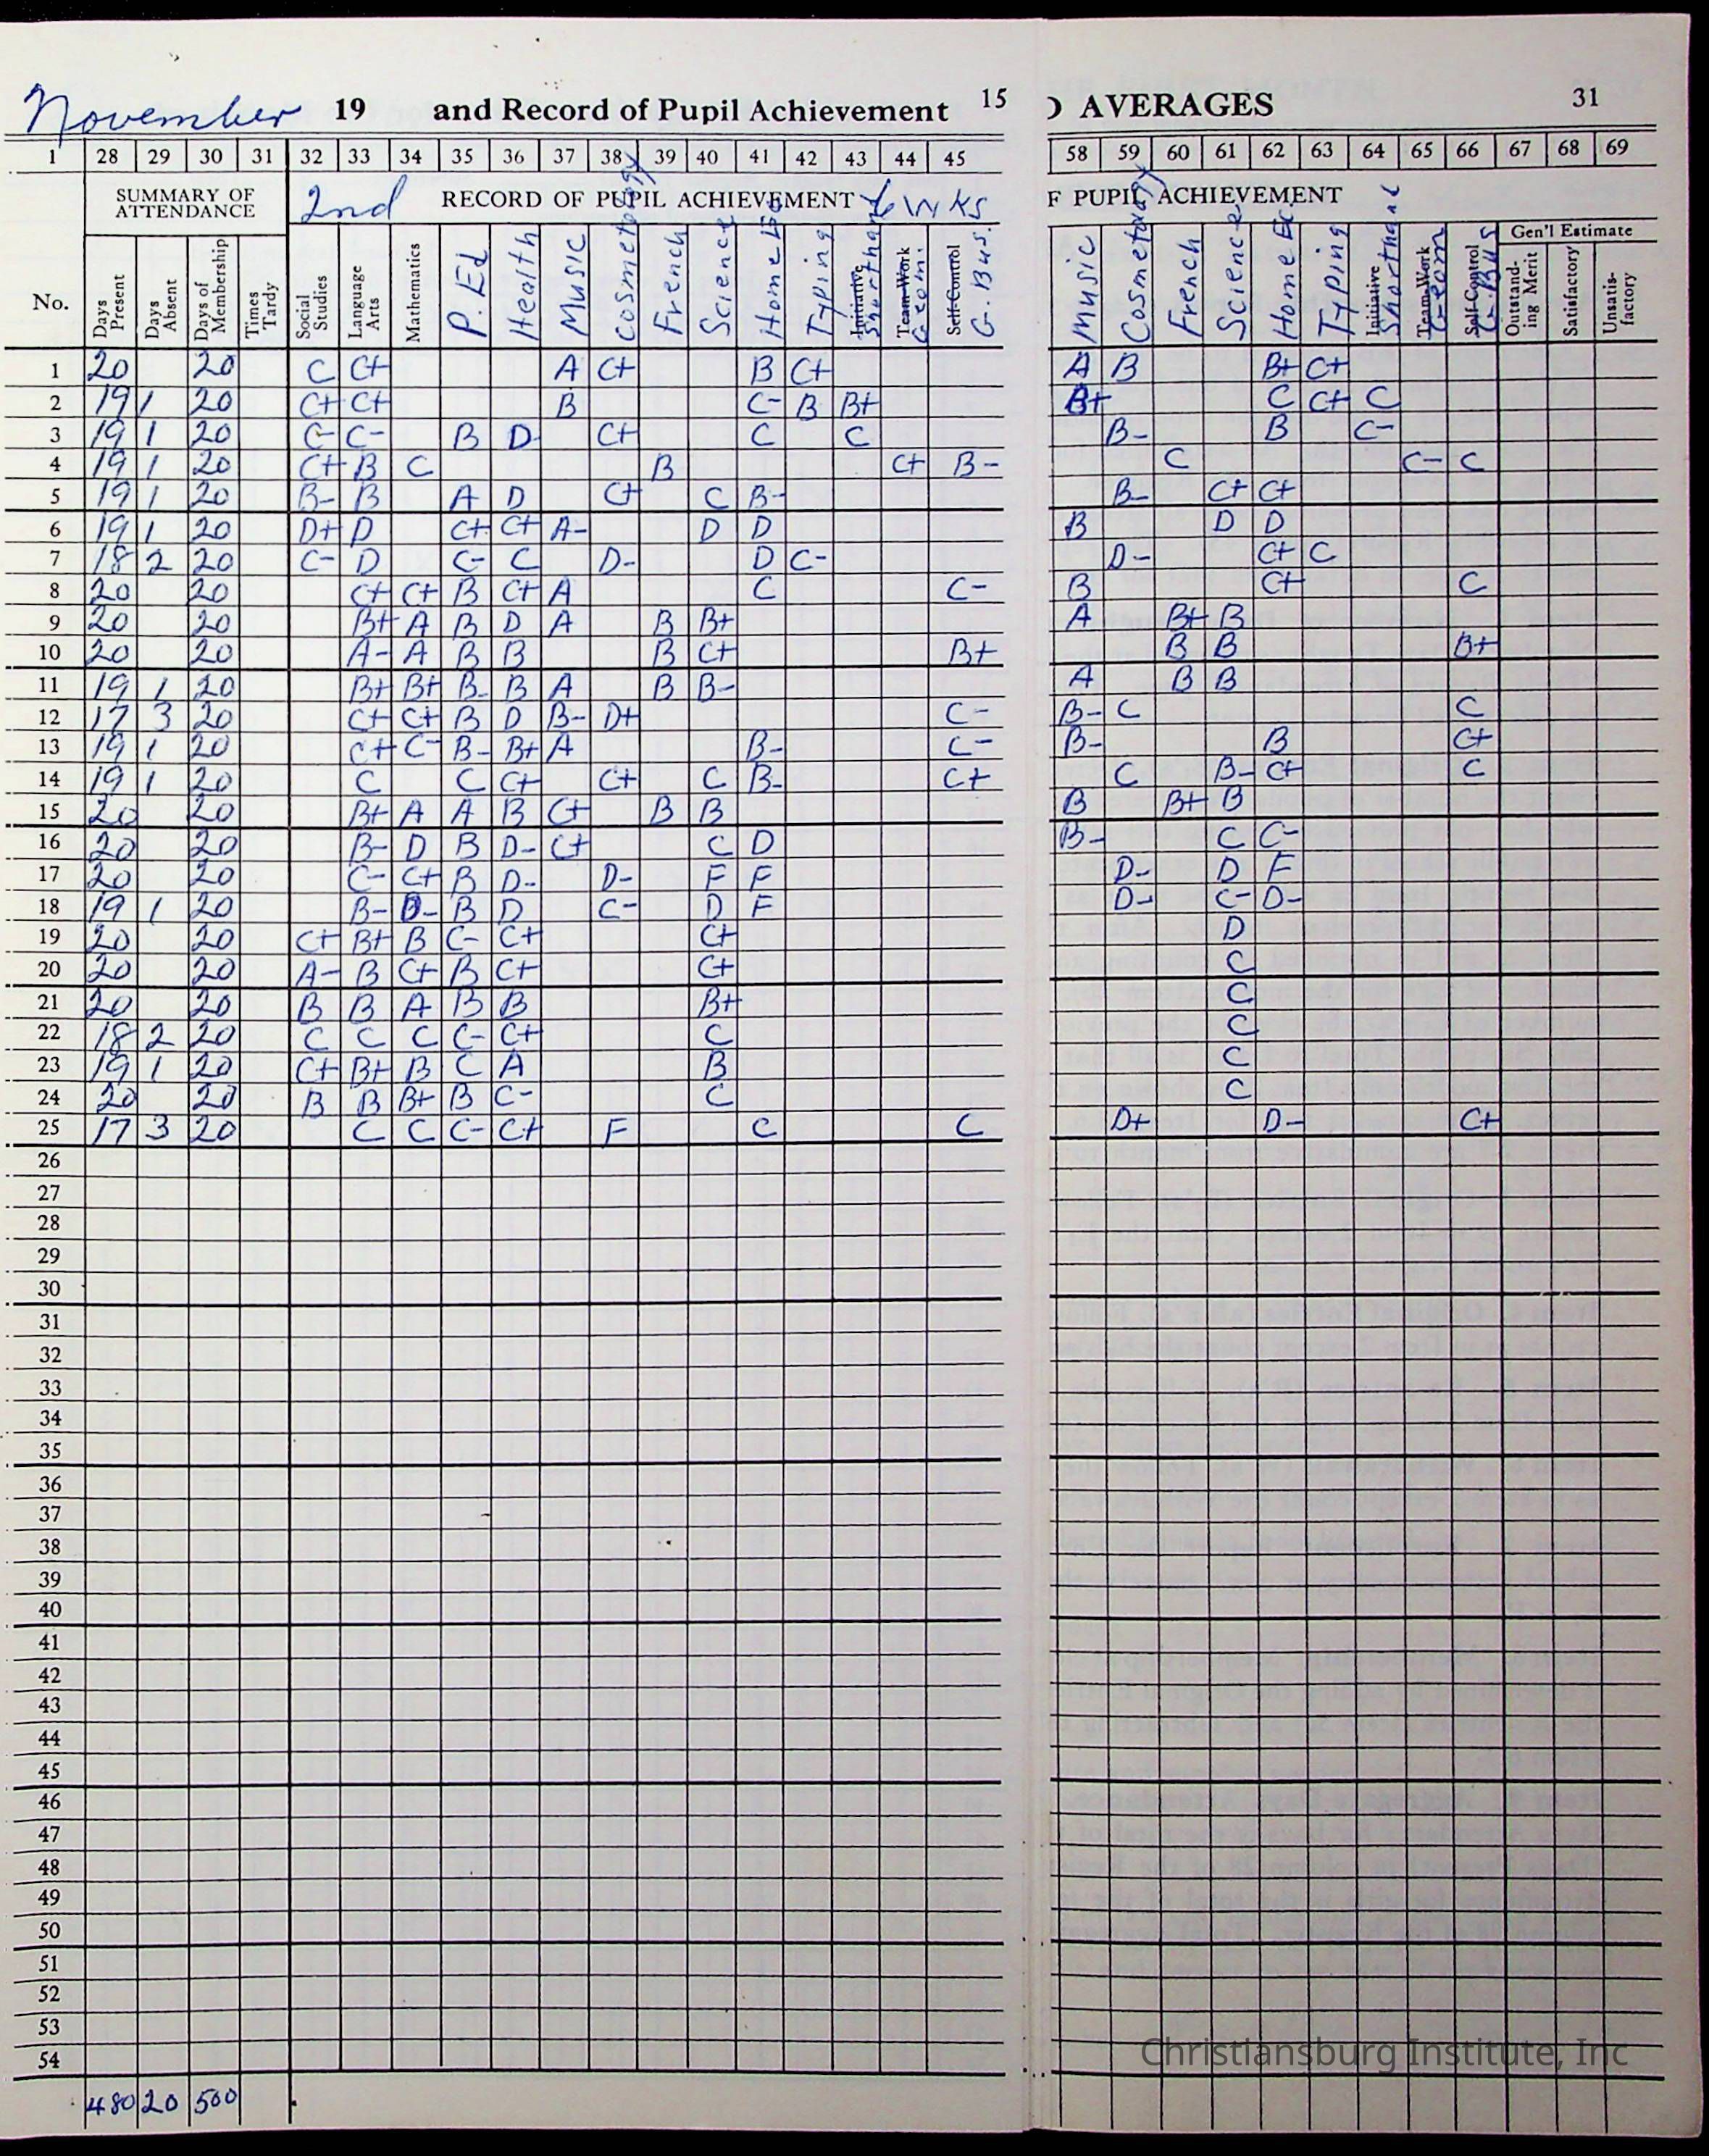 November 19 and Record of Pupil Achievement 15
1 28 29 30 31 32 33 34 35 36 37 38 39 40 41 42 43 44 45
SUMMARY OF ATTENDANCE 2nd RECORD OF PUPIL ACHIEVEMENT 6 WKS
No. Days Present Days Absent Days of Membership Times Tardy Social Studies Language Arts Mathematics P. Ed Health Music Cosmetology French Science Home Ec Typing Initiative Shorthand Team Work Geom. Self-Control G. Bus.
1 20 20 C C+ A C+ B C+
2 19 1 20 C+ C+ B C- B B+
3 19 1 20 C- C- B D- C+ C C
4 19 1 20 C+ B C B C+ B-
5 19 1 20 B- B A D C+ C B-
6 19 1 20 D+ D C+ C+ A- D D
7 18 2 20 C- D C- C D- D C-
8 20 20 C+ C+ B C+ A C C-
9 20 20 B+ A B D A B B+
10 20 20 A- A B B B C+ B+
11 19 1 20 B+ B+ B- B A B B-
12 17 3 20 C+ C+ B D B- D+ C-
13 19 1 20 C+ C- B- B+ A B- C-
14 19 1 20 C C C+ C+ C B- C+
15 20 20 B+ A A B C+ B B
16 20 20 B- D B D- C+ C D
17 20 20 C- C+ B D- D- F F
18 19 1 20 B- D- B D C- D F
19 20 20 C+ B+ B C- C+ C+
20 20 20 A- B C+ B C+ C+
21 20 20 B B A B B B+
22 18 2 20 C C C C- C+ C
23 19 1 20 C+ B+ B C A B
24 20 20 B B B+ B C- C
25 17 3 20 C C C- C+ F C C
26
27
28
29
30
31
32
33
34
35
36
37
38
39
40
41
42
43
44
45
46
47
48
49
50
51
52
53
54
480 20 500
) AVERAGES 31
58 59 60 61 62 63 64 65 66 67 68 69
F PUPIL ACHIEVEMENT
Gen'l Estimate
Music Cosmetology French Science Home Ec Typing Initiative Shorthand Team Work Geom Self Control G. Bus Outstanding Merit Satisfactory Unsatisfactory
A B B+ C+
B+ C C+ C
B- B C-
C C- C
B- C+ C+
B D D
D- C+ C
B C+ C
A B+ B
B B B+
A B B
B- C C
B- B C+
C B- C+ C
B B+ B
B- C C-
D- D F
D- C- D-
D
C
C
C
C
C
D+ D- C+
Christiansburg Institute, Inc